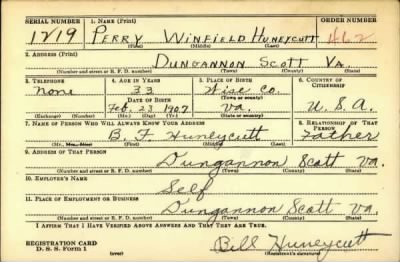 SERIAL NUMBER 1. NAME (Print) ORDER NUMBER
1219 PERRY WINFIELD HUNEYCUTT 462
(First) (Middle) (Last)
2. ADDRESS (Print)
DUNGANNON SCOTT VA.
(Number and street or R. F. D. number) (Town) (County) (State)
3. TELEPHONE 4. AGE IN YEARS 5. PLACE OF BIRTH 6. COUNTRY OF CITIZENSHIP
None 33 Wise Co.
DATE OF BIRTH (Town or county)
Feb. 23 1907 Va. U.S.A.
(Exchange) (Number) (Mo.) (Day) (Yr.) (State or country)
7. NAME OF PERSON WHO WILL ALWAYS KNOW YOUR ADDRESS 8. RELATIONSHIP OF THAT PERSON
B. F. Huneycutt Father
(Mr., Mrs., Miss) (First) (Middle) (Last)
9. ADDRESS OF THAT PERSON
Dungannon Scott Va.
(Number and street or R. F. D. number) (Town) (County) (State)
10. EMPLOYER'S NAME
Self
11. PLACE OF EMPLOYMENT OR BUSINESS
Dungannon Scott Va.
(Number and street or R. F. D. number) (Town) (County) (State)
I AFFIRM THAT I HAVE VERIFIED ABOVE ANSWERS AND THAT THEY ARE TRUE.
REGISTRATION CARD
D. S. S. Form 1 (over) Bill Huneycutt
(Registrant's signature)